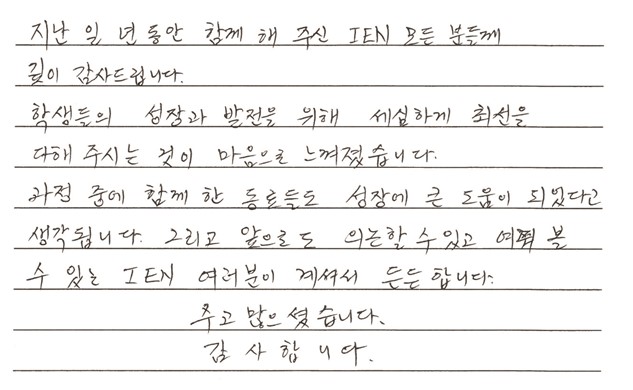 지난 일 년 동안 함께 해 주신 IEN 모든 분들께
깊이 감사드립니다.
학생들의 성장과 발전을 위해 세심하게 최선을
다해 주시는 것이 마음으로 느껴졌습니다.
과정 중에 함께 한 동료들도 성장에 큰 도움이 되었다고
생각됩니다. 그리고 앞으로도 의논할 수 있고 여쭤 볼
수 있는 IEN 여러분이 계셔서 든든합니다.
수고 많으셨습니다.
감사합니다.